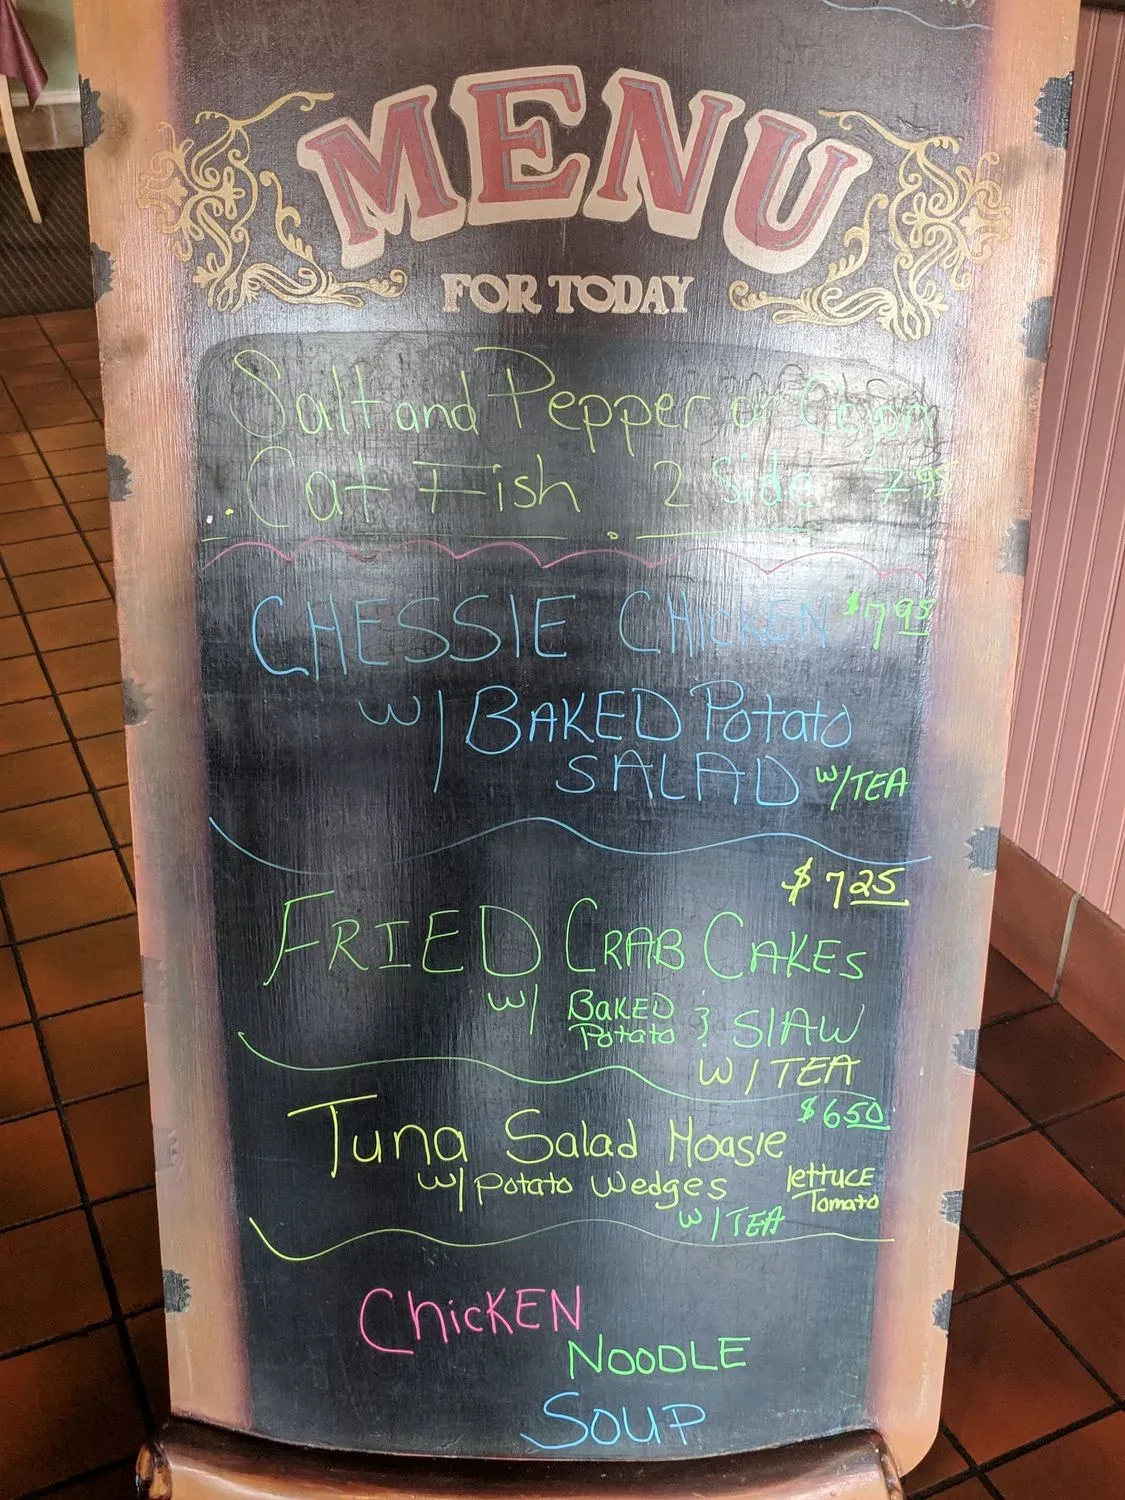 MENU
FOR TODAY
Salt and Pepper or Cajon
Cat Fish 2 Side 7.95
CHESSIE CHICKEN $7.95
w/ BAKED Potato
SALAD w/TEA
$7.25
FRIED CRAB CAKES
w/ BAKED Potato & SlAW
W/TEA
$6.50
Tuna Salad Hoagie
w/ potato wedges lettuce Tomato
w/TEA
ChicKEN
NOODLE
SOUP